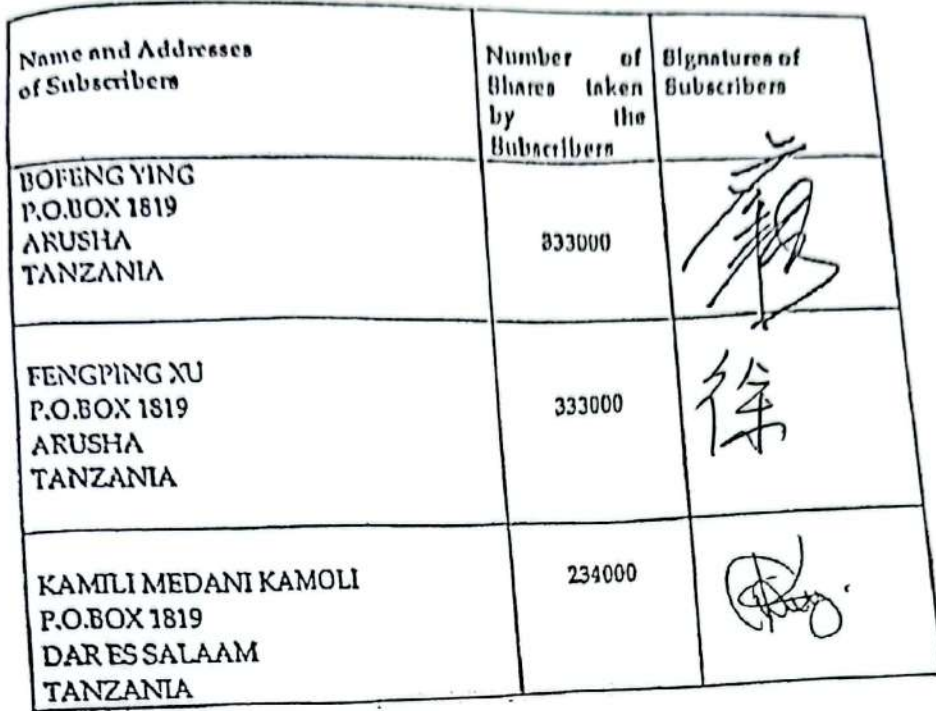 Name and Addresses
of Subscribers
Number of
Shares taken
by the
Subscribers
Signatures of
Subscribers
BOFENG YING
P.O.BOX 1819
ARUSHA
TANZANIA
333000
FENGPING XU
P.O.BOX 1819
ARUSHA
TANZANIA
333000
徐
KAMILI MEDANI KAMOLI
P.O.BOX 1819
DAR ES SALAAM
TANZANIA
234000